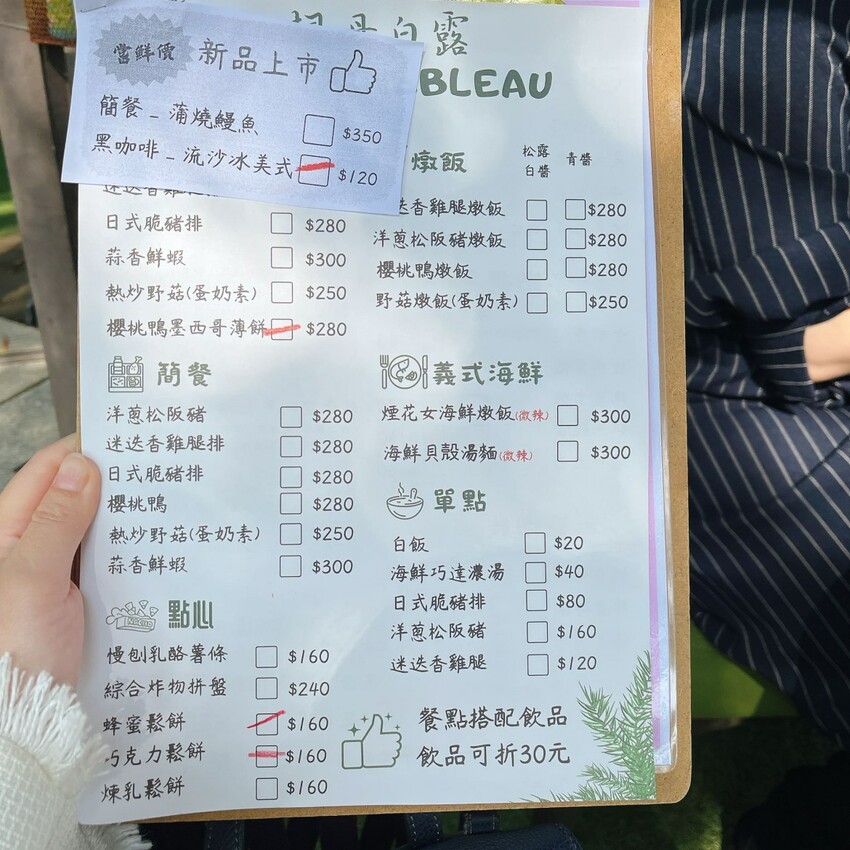 嘗鮮價 新品上市
簡餐_蒲燒鰻魚 $350
黑咖啡_流沙冰美式 $120
白露
BLEAU
日式脆豬排 $280
蒜香鮮蝦 $300
熱炒野菇(蛋奶素) $250
櫻桃鴨墨西哥薄餅 $280
簡餐
洋蔥松阪豬 $280
迷迭香雞腿排 $280
日式脆豬排 $280
櫻桃鴨 $280
熱炒野菇(蛋奶素) $250
蒜香鮮蝦 $300
點心
NACHO
慢刨乳酪薯條 $160
綜合炸物拼盤 $240
蜂蜜鬆餅 $160
巧克力鬆餅 $160
煉乳鬆餅 $160
燉飯 松露白醬 青醬
迭香雞腿燉飯 $280
洋蔥松阪豬燉飯 $280
櫻桃鴨燉飯 $280
野菇燉飯(蛋奶素) $250
義式海鮮
煙花女海鮮燉飯(微辣) $300
海鮮貝殼湯麵(微辣) $300
單點
白飯 $20
海鮮巧達濃湯 $40
日式脆豬排 $80
洋蔥松阪豬 $160
迷迭香雞腿 $120
餐點搭配飲品
飲品可折30元